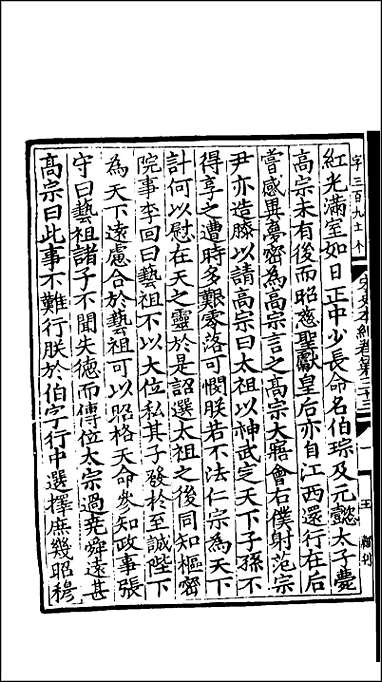 字三百九十
宋史本紀卷第三十三
一
王
刊
紅光滿室如日正中少長命名伯琮及元懿太子薨
高宗未有後而昭慈聖獻皇后亦自江西還行在后
嘗感異夢密為高宗言之高宗大寤會右僕射范宗
尹亦造膝以請高宗曰太祖以神武定天下子孫不
得享之遭時多艱零落可憫朕若不法仁宗為天下
計何以慰在天之靈於是詔選太祖之後同知樞密
院事李回曰藝祖不以大位私其子發於至誠陛下
為天下遠慮合於藝祖可以昭格天命參知政事張
守曰藝祖諸子不聞失德而傳位太宗過堯舜遠甚
高宗曰此事不難行朕於伯字行中選擇庶幾昭穆